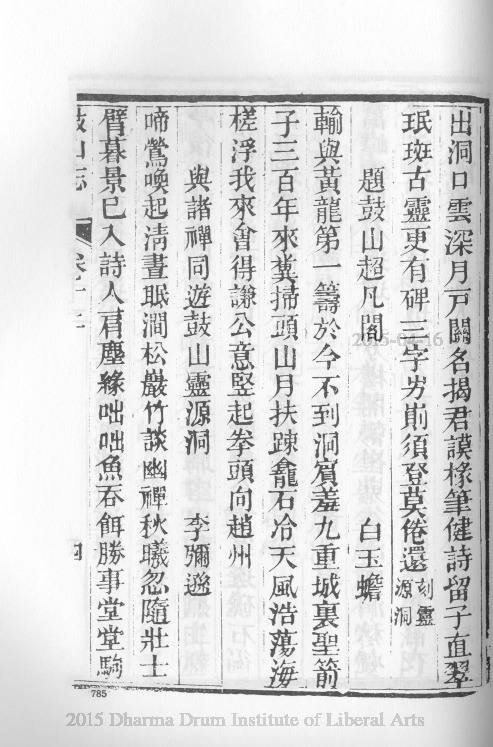 出洞口雲深月戸關名揭君謨椽筆健詩留子直翠
珉斑古靈更有碑三字屴崱須登莫倦還刻靈源洞
題鼓山超凡閣　白玉蟾
輸與黃龍第一籌於今不到洞賓羞九重城裏聖箭
子三百年來糞掃頭山月扶踈龕石冷天風浩蕩海
槎浮我來會得謙公意竪起拳頭向趙州
與諸禪同遊鼓山靈源洞　李彌遜
啼鶯喚起清晝眠澗松巖竹談幽禪秋曦忽隨壯士
臂暮景已入詩人肩塵緣咄咄魚吞餌勝事堂堂駒
鼓山志　卷十二　四
785
2015-04-16
2015 Dharma Drum Institute of Liberal Arts